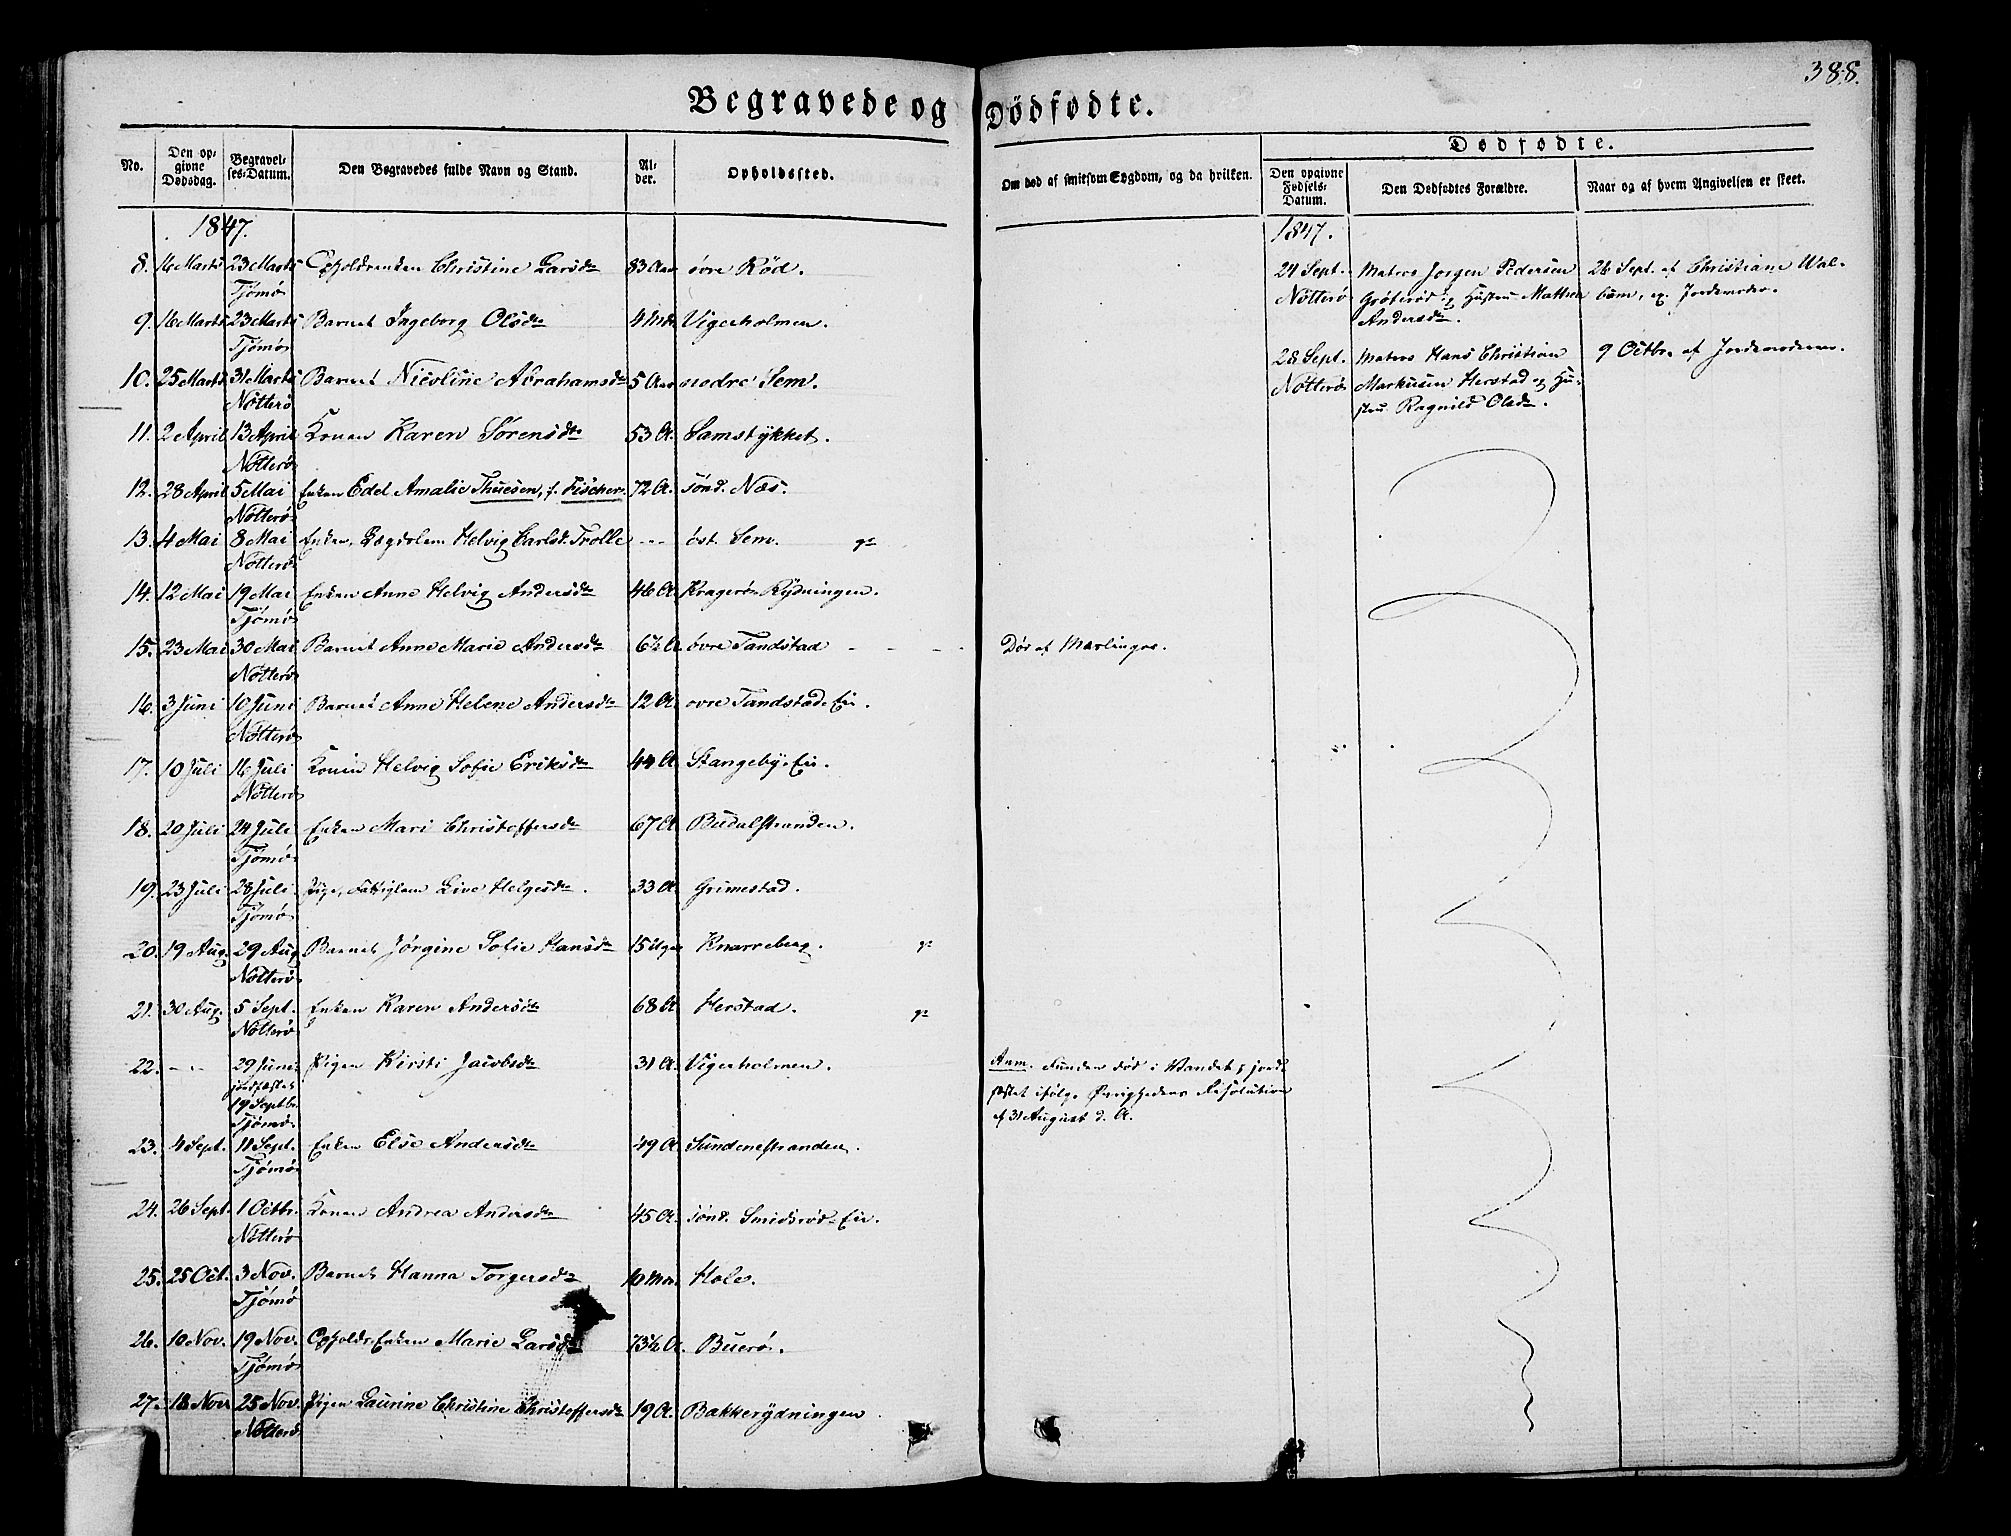 388.
Begravede og Dødfødte.
No.
Den opgivne Dødsdag.
Begravelses-Datum.
Den Begravedes fulde Navn og Stand.
Alder.
Opholdssted.
Om død af smitsom Sygdom, og da hvilken.
Dødfødte.
Den opgivne Fødsels-Datum.
Den Dødfødtes Forældre.
Naar og af hvem Angivelsen er skeet.
1847.
8. 16 Marts 23 Marts Christine Larsdtr 83 Aar øvre Rød.
Tjømø
9. 16 Marts 23 Marts Barnet Ingeborg Olsdtr 4 Vigerholmen.
Tjømø
10. 25 Marts 31 Marts Barnet Nicoline Abrahamsdtr 5 Aar nedre Sem.
Nøtterø
11. 2 April 13 April Konen Karen Sørensdtr 53 A. Samstykket.
Nøtterø
12. 28 April 5 Mai Enken Edel Amalie Thuesen, f. Fischer. 72 A. sønd. Næs.
Nøtterø
13. 4 Mai 8 Mai Enken, Lægdslem Helvig Carlsd. Trolle - - - øst. Sem.
Nøtterø
14. 12 Mai 19 Mai Enken Anne Helvig Andersdtr 46 A. Kragerø Rydningen.
Tjømø
15. 23 Mai 30 Mai Barnet Anne Marie Andersdtr 6½ A. øvre Tandstad - - - Død af Mæslinger.
Nøtterø
16. 3 Juni 10 Juni Barnet Anne Helene Andersdtr 12 A. øvre Tandstad. Eie.
Nøtterø
17. 10 Juli 16 Juli Konen Helvig Sofie Eriksdtr 44 A. Stangeby. Eie.
Nøtterø
18. 20 Juli 24 Juli Enken Mari Christoffersdtr 67 A. Budalstranden.
Tjømø
19. 23 Juli 28 Juli Pige, Fattiglem Live Helgesdtr. 33 A. Grimestad.
Tjømø
20. 19 Aug. 29 Aug Barnet Jørgine Sofie Hansdtr 15 Uger Knarreberg.
Nøtterø
21. 30 Aug. 5 Sept. Enken Karen Andersdtr 68 A. Herstad.
Nøtterø
22. - - - 29 Juni Pigen Kirsti Jacobsdtr 31 A. Vigerholmen. Anm. Funden død i Vandet og jord-
jordfæstet
19 Septbr. fæstet ifølge Øvrighedens Resolution
Tjømø. af 31 August d. A.
23. 4 Sept. 11 Sept. Enken Else Andersdtr 49 A. Sundenestranden.
Tjømø
24. 26 Sept. 1 Octbr. Konen Andrea Andersdtr 45 A. sønd. Smidsrød-Eie.
Nøtterø
25. 25 Oct. 3 Nov. Barnet Hanna Torgersdtr 10 Mdr. Hole.
Tjømø
26. 10 Nov. 19 Nov. Opholds-Enken Marie Larsdtr 73½ A. Buerø.
Tjømø
27. 18 Novr 25 Nov. Pigen Laurine Christine Christoffersdtr 19 A. Bakkerydningen
Nøtterø
1847.
24 Sept. Matros Jørgen Pedersen 26 Sept. af Christiane Wal-
Nøtterø Grøterød og Hustru Mathea bøm, ex. Jordemoder.
Andersdtr.
28 Sept. Matros Hans Christian 9 Octbr. af Jordemoderen.
Nøtterø Markusen Herstad og Hu-
stru Ragnild Olsdtr.